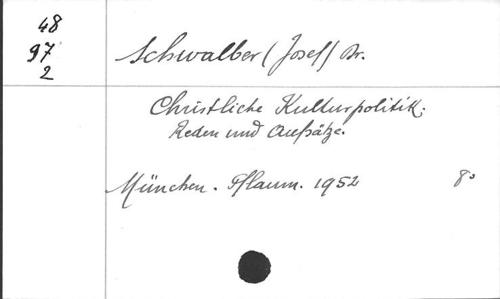 48
97
2
Schwalber (Josef) Dr.
Christliche Kulturpolitik.
Reden und Aufsätze.
München. Pflaum. 1952 8°